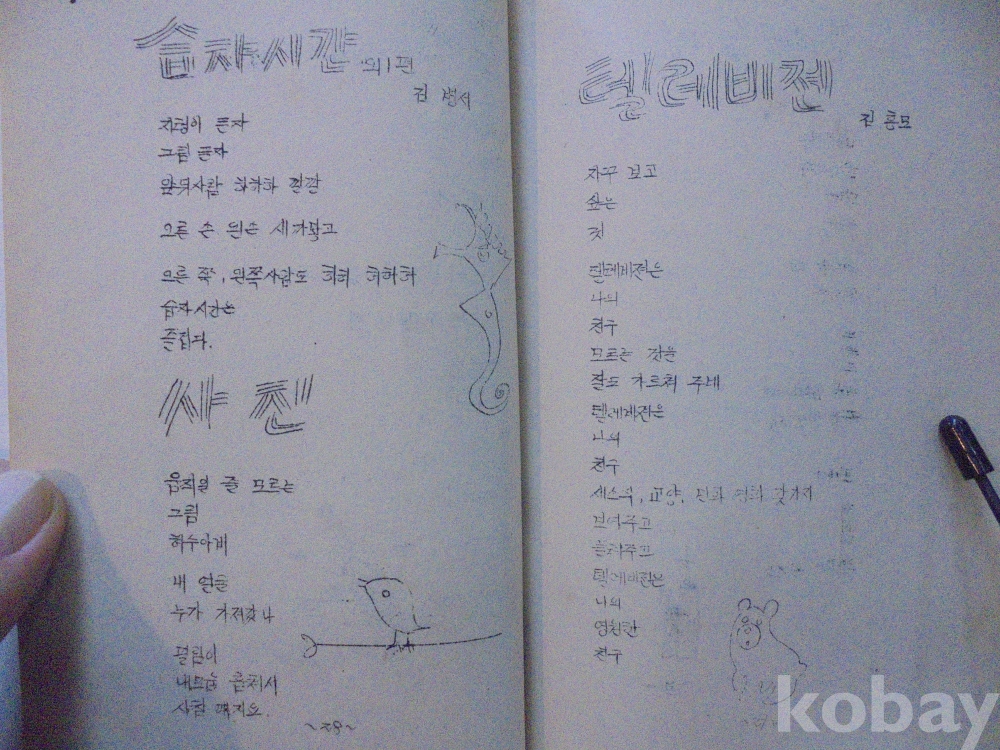 습자시간 외1편
김 병서
지렁이 글자
그림 글자
앞뒤사람 하하하 깔깔
오른 손 왼손 세가왕고
오른 쪽, 왼쪽사람도 히히 히하하
습자시간은
즐겁다.
사진
움직일 줄 모르는
그림
허수아비
내 얼굴
누가 가져갔나
필림이
내모습 훔쳐서
사첩 얘지요.
~28~
텔레비젼
김 흥모
자꾸 보고
싶은
것
텔레비젼은
나의
친구
모르는 것을
잘도 가르쳐 주네
텔레비젼은
나의
친구
교양, 만화 영화 갖가지
보여주고
들려주고
텔레비젼은
나의
영원한
친구
kobay